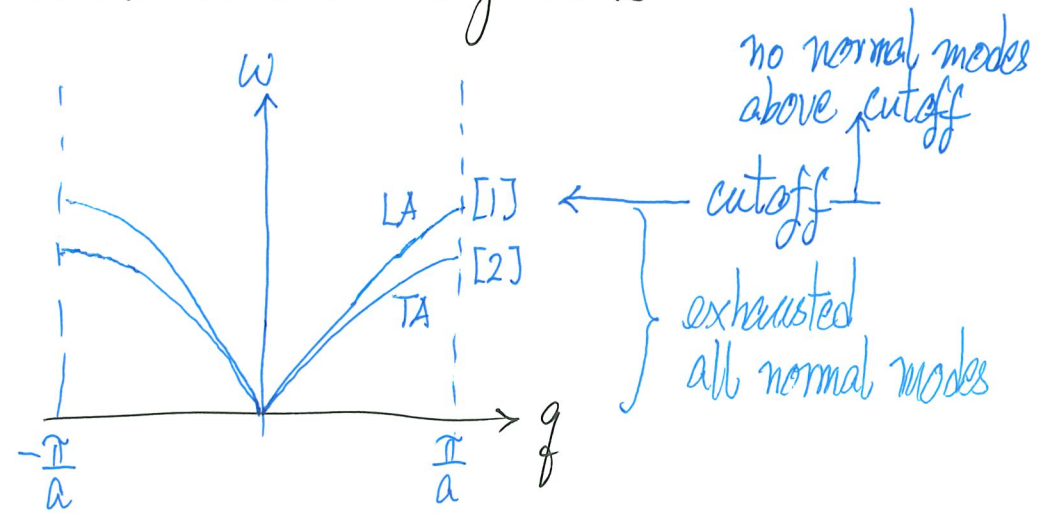 no normal modes
above cutoff
ω
LA [1]
cutoff
[2]
TA
exhausted
all normal modes
q
-π/a
π/a